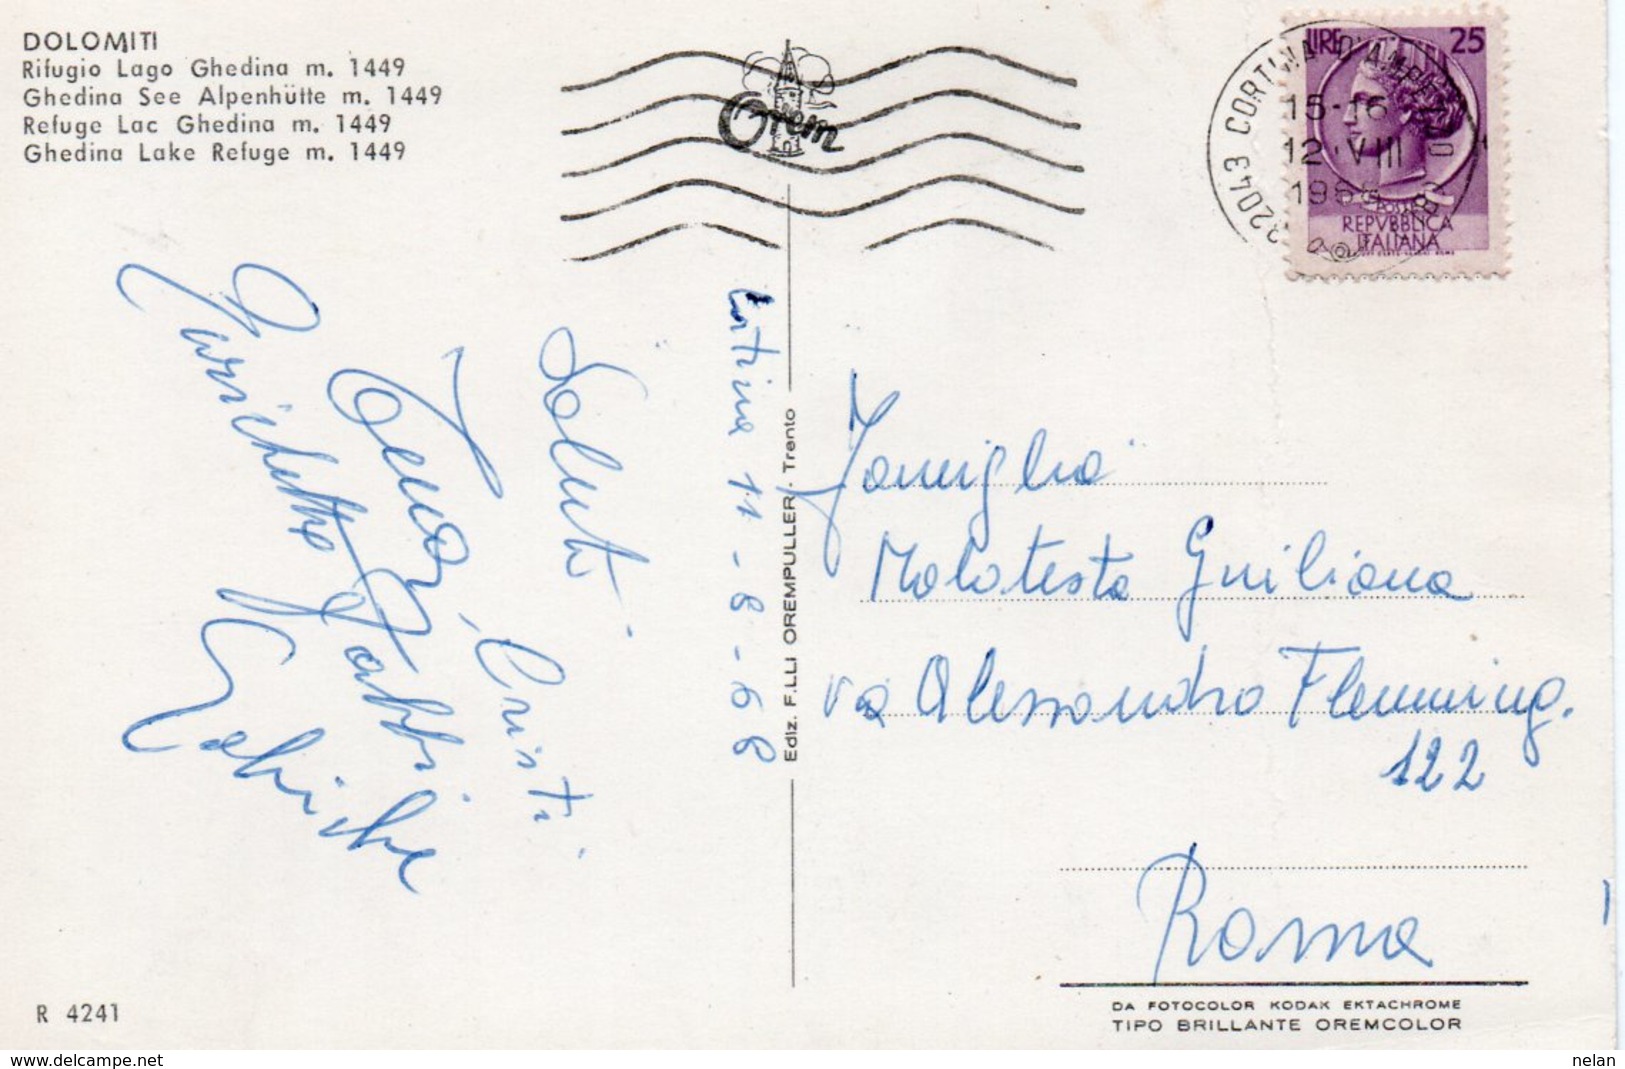 DOLOMITI
Rifugio Lago Ghedina m. 1449
Ghedina See Alpenhütte m. 1449
Refuge Lac Ghedina m. 1449
Ghedina Lake Refuge m. 1449
Orem
LIRE 25
POSTE
REPVBBLICA
ITALIANA
CORTINA D'AMPEZZO
15-16
12·VIII
Cortina 11-8-68
Saluti
Cristi
Gabriche
Ediz. F.LLI OREMPULLER - Trento
Famiglia
Malatesta Guiliana
via Alessandro Flemming.
122
Roma
R 4241
DA FOTOCOLOR KODAK EKTACHROME
TIPO BRILLANTE OREMCOLOR
www.delcampe.net
nelan